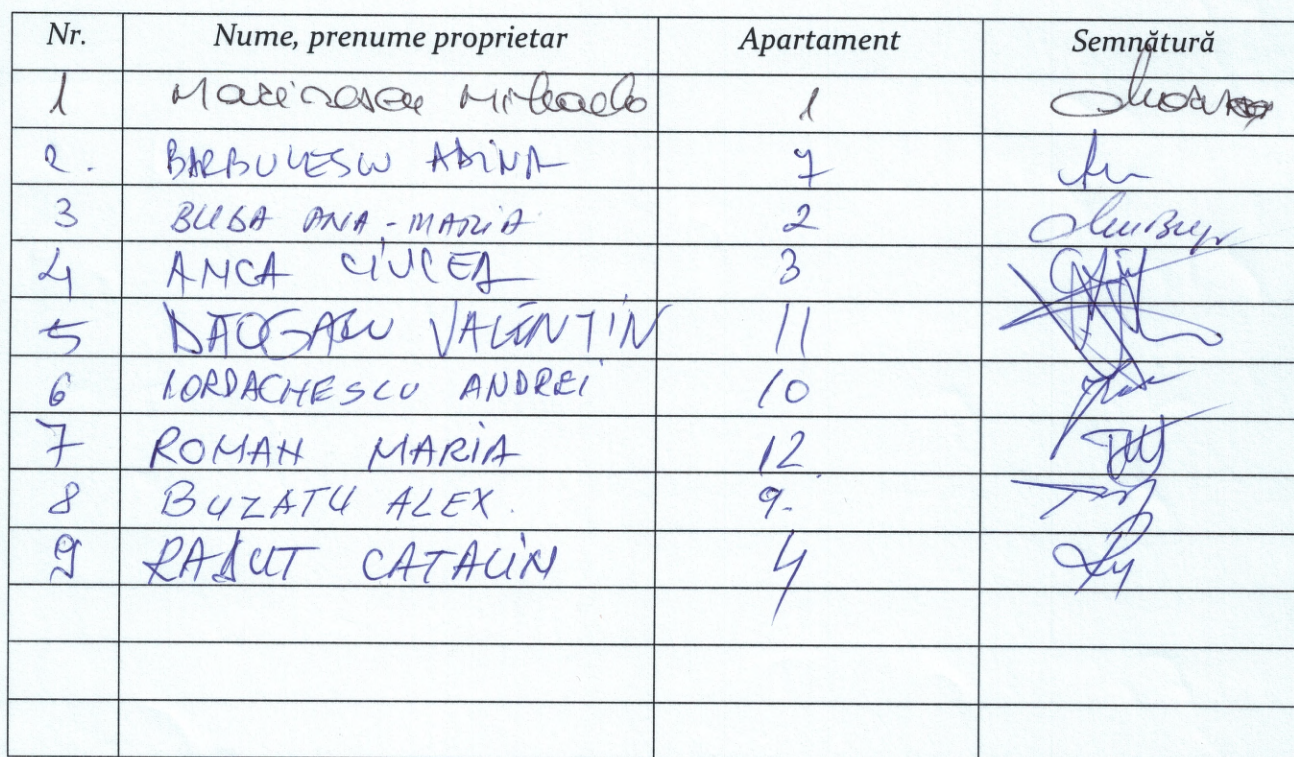 Nr. Nume, prenume proprietar Apartament Semnătură
1 Marinescu Mihaela 1
2. BARBULESCU ADINA 7
3 BUBA ANA-MARIA 2
4 ANCA CIUCEA 3
5 VALENTIN 11
6 IORDACHESCU ANDREI 10
7 ROMAN MARIA 12
8 BUZATU ALEX. 9.
9 RADUT CATALIN 4